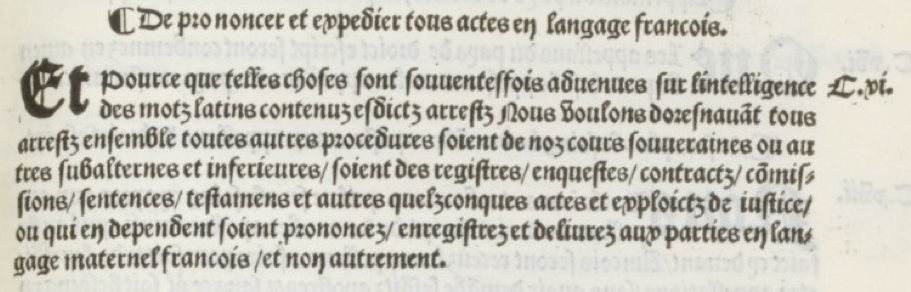 ⸿ De prononcer et expedier tous actes en langage francois.
Et pource que telles choses sont souuenteffois aduenues sur lintelligence C.vi.
des motz latins contenuz esdictz arrestz Nous voulons doresnauāt tous
arrestz ensemble toutes autres procedures soient de noz cours souueraines ou au
tres subalternes et inferieures/ soient des registres/ enquestes/ contractz/ cōmis⸗
sions/ sentences/ testamens et autres quelzconques actes et exploictz de iustice/
ou qui en dependent soient prononcez/ enregistrez et deliurez aux parties en lan⸗
gage maternel francois /et non autrement.